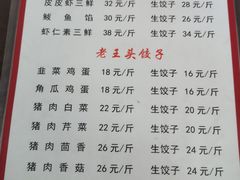 皮皮虾三鲜 32 元/斤 生饺子 28 元/斤
鲅鱼馅 30 元/斤 生饺子 26 元/斤
虾仁素三鲜 38 元/斤 生饺子 34 元/斤
老王头饺子
韭菜鸡蛋 18 元/斤 生饺子 16 元/斤
角瓜鸡蛋 18 元/斤 生饺子 16 元/斤
猪肉白菜 22 元/斤 生饺子 20 元/斤
猪肉芹菜 22 元/斤 生饺子 20 元/斤
猪肉茴香 26 元/斤 生饺子 24 元/斤
猪肉香菇 26 元/斤 生饺子 24 元/斤